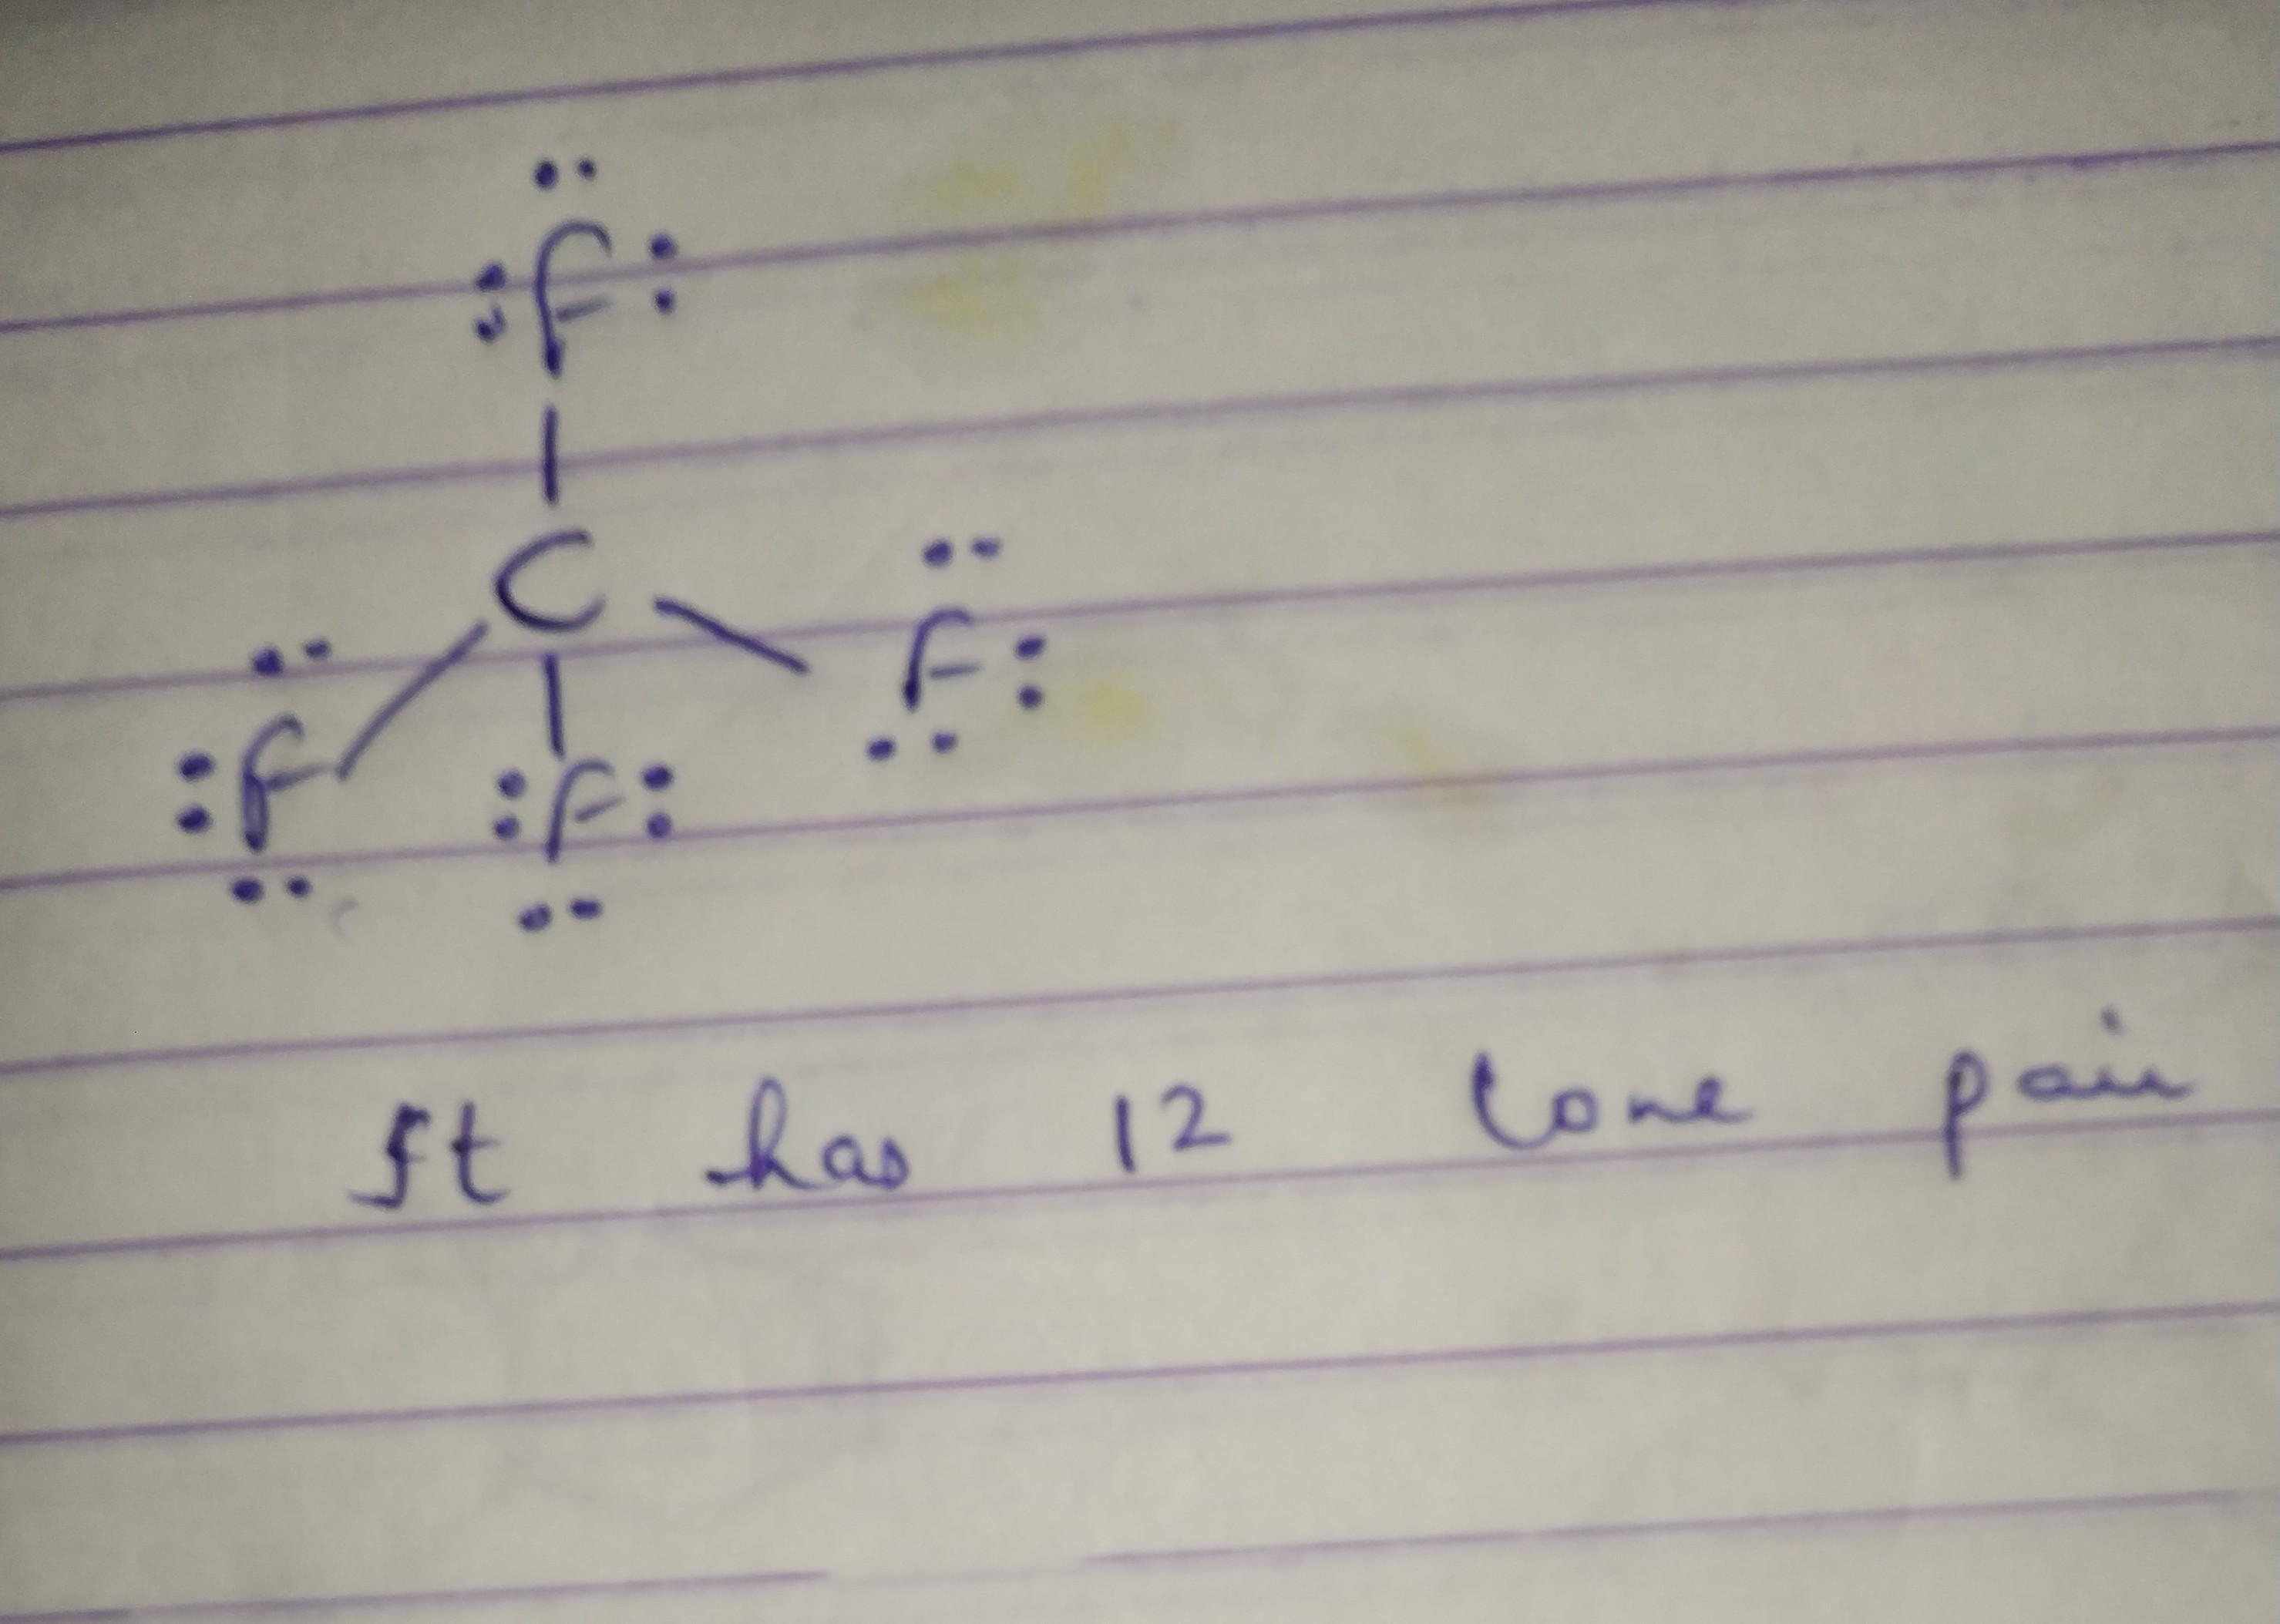 F
C
F
F
F
It has 12 lone pair